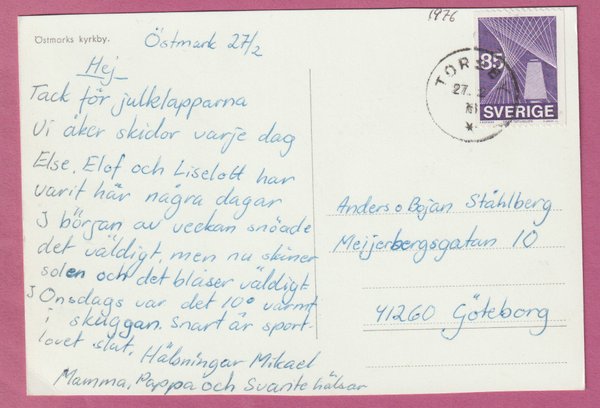 Östmarks kyrkby.
1976
Östmark 27/2
Hej
Tack för julklapparna
Vi åker skidor varje dag
Else, Elof och Liselott har
varit här några dagar
I början av veckan snöade
det väldigt, men nu skiner
solen och det blåser väldigt
I Onsdags var det 10° varmt
i skuggan. Snart är sport-
lovet slut. Hälsningar Mikael
Mamma, Pappa och Svante hälsar
85
SVERIGE
TORSBY
27. 2
Anders o Bojan Ståhlberg
Meijerbergsgatan 10
41260 Göteborg